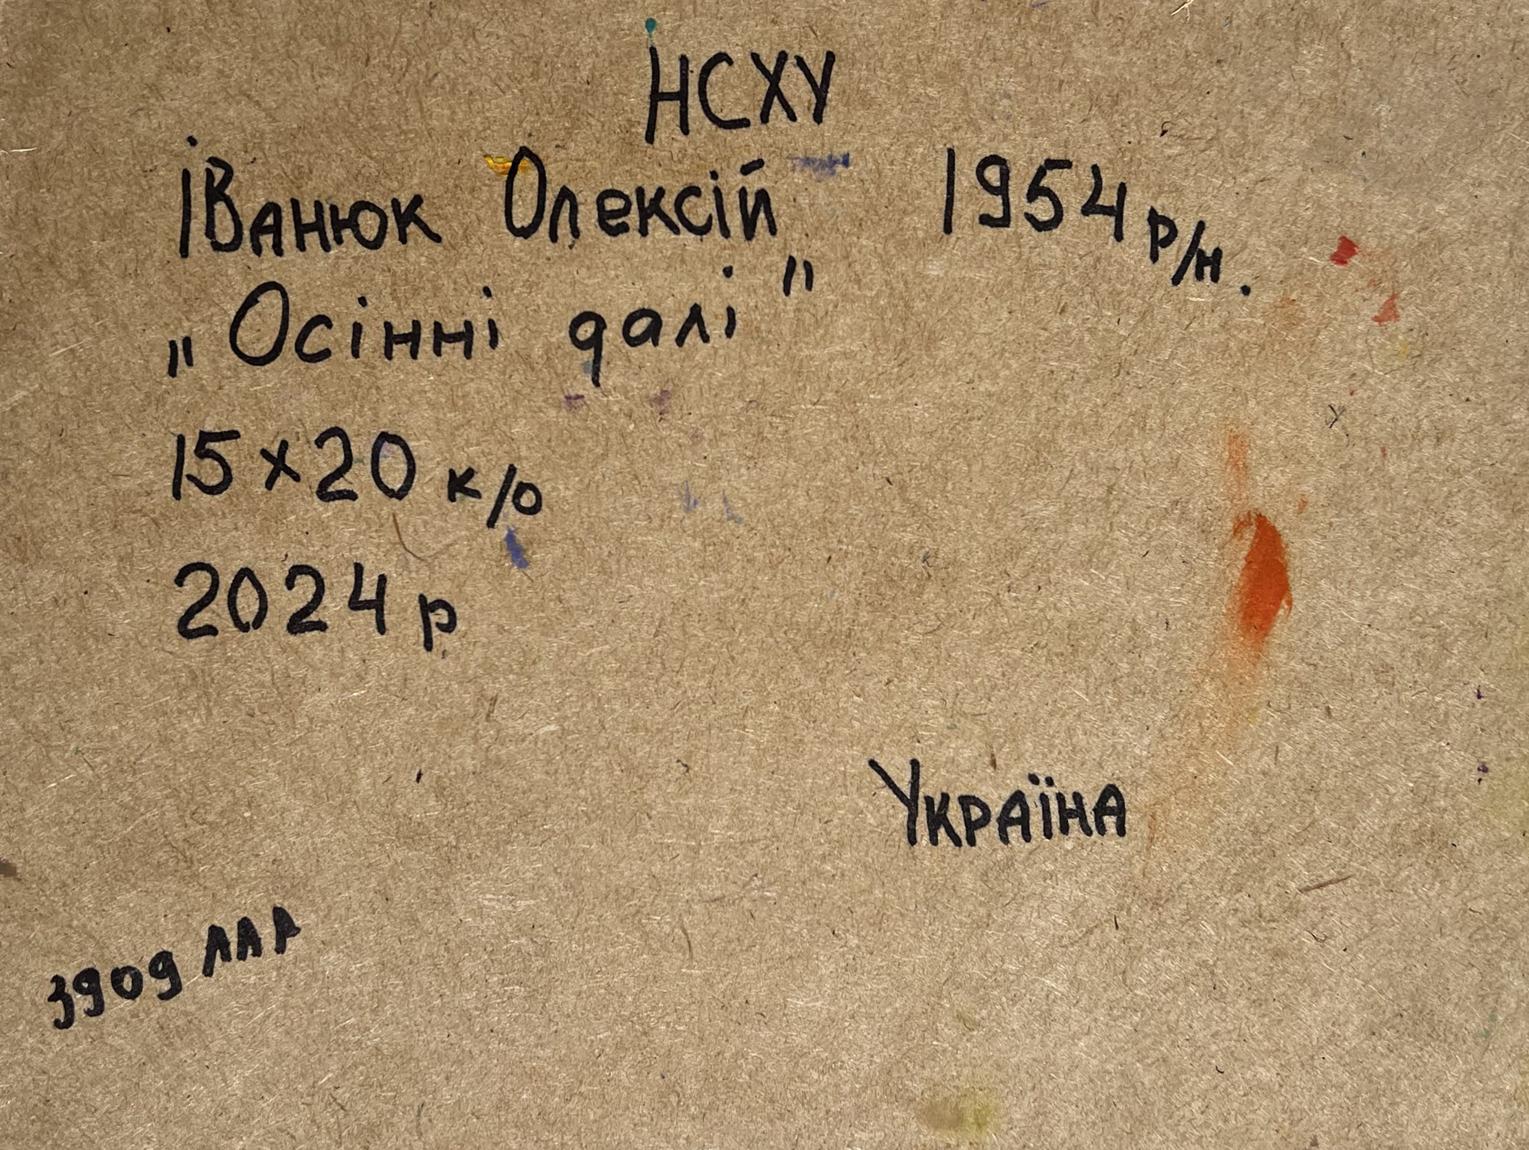 НСХУ
Іванюк Олексій 1954 р/н.
„Осінні далі"
15×20 к/о
2024 р
Україна
3909 ЛАА